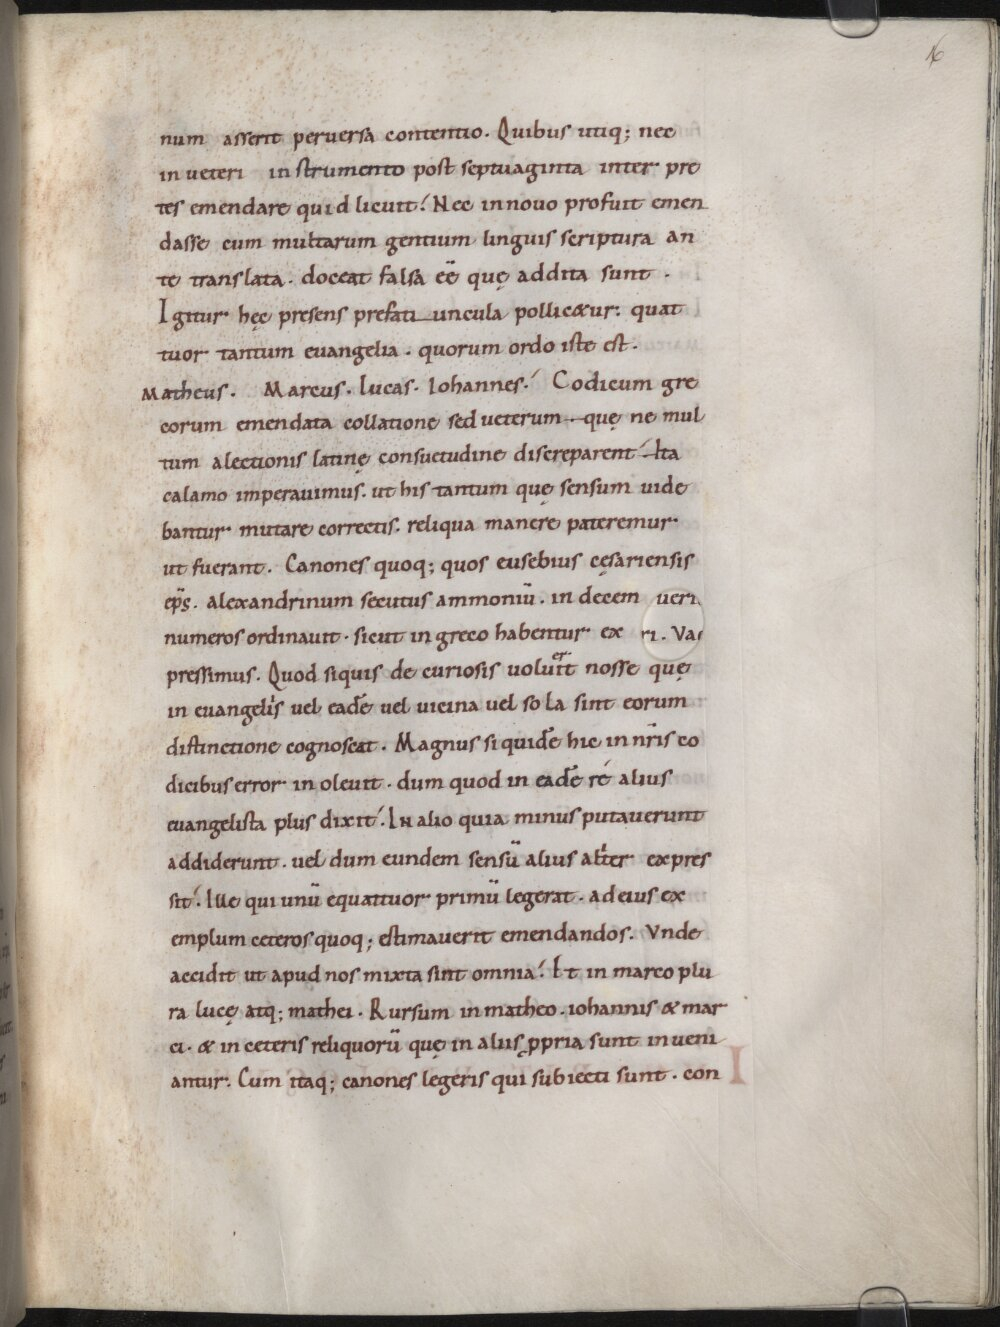 16
num asserit perversa contentio. Quibus utiq; nec
in ueteri instrumento post septuaginta inter pre
tes emendare quid licuit. Nec in nouo profuit emen
dasse cum multarum gentium linguis scriptura an
te translata. doceat falsa eē̄ quę addita sunt.
Igitur hęc presens prefatiuncula pollic&ur. quat
tuor tantum euangelia. quorum ordo iste est.
Matheus. Marcus. lucas. Iohannes. Codicum gre
corum emendata collatione sed ueterum. quę ne mul
tum a lectionis latinę consuetudine discreparent. Ita
calamo imperauimus. ut his tantum quę sensum uide
bantur mutare correctis. reliqua manere pateremur
ut fuerant. Canones quoq; quos eusebius cęsariensis
ep̄s. alexandrinum secutus ammoniū. in decem
numeros ordinauit. sicut in greco habentur ex
pressimus. Quod siquis de curiosis uoluerit nosse quę
in euangeliis uel eadē uel uicina uel sola sint eorum
distinctione cognoscat. Magnus siquidē hic in nr̄is co
dicibus error inoleuit. dum quod in eadē re alius
euangelista plus dixit. In alio quia minus putauerunt
addiderunt. uel dum eundem sensū alius alt̄er expres
sit. Ille qui unū equattuor primū legerat. ad eius ex
emplum ceteros quoq; estimauerit emendandos. Vnde
accidit ut apud nos mixta sint omnia. Et in marco plu
ra lucę atq; mathei. Rursum in matheo. iohannis & mar
ci. & in ceteris reliquorū quę in aliis ꝓpria sunt inueni
antur. Cum itaq; canones legeris qui subiecti sunt. con